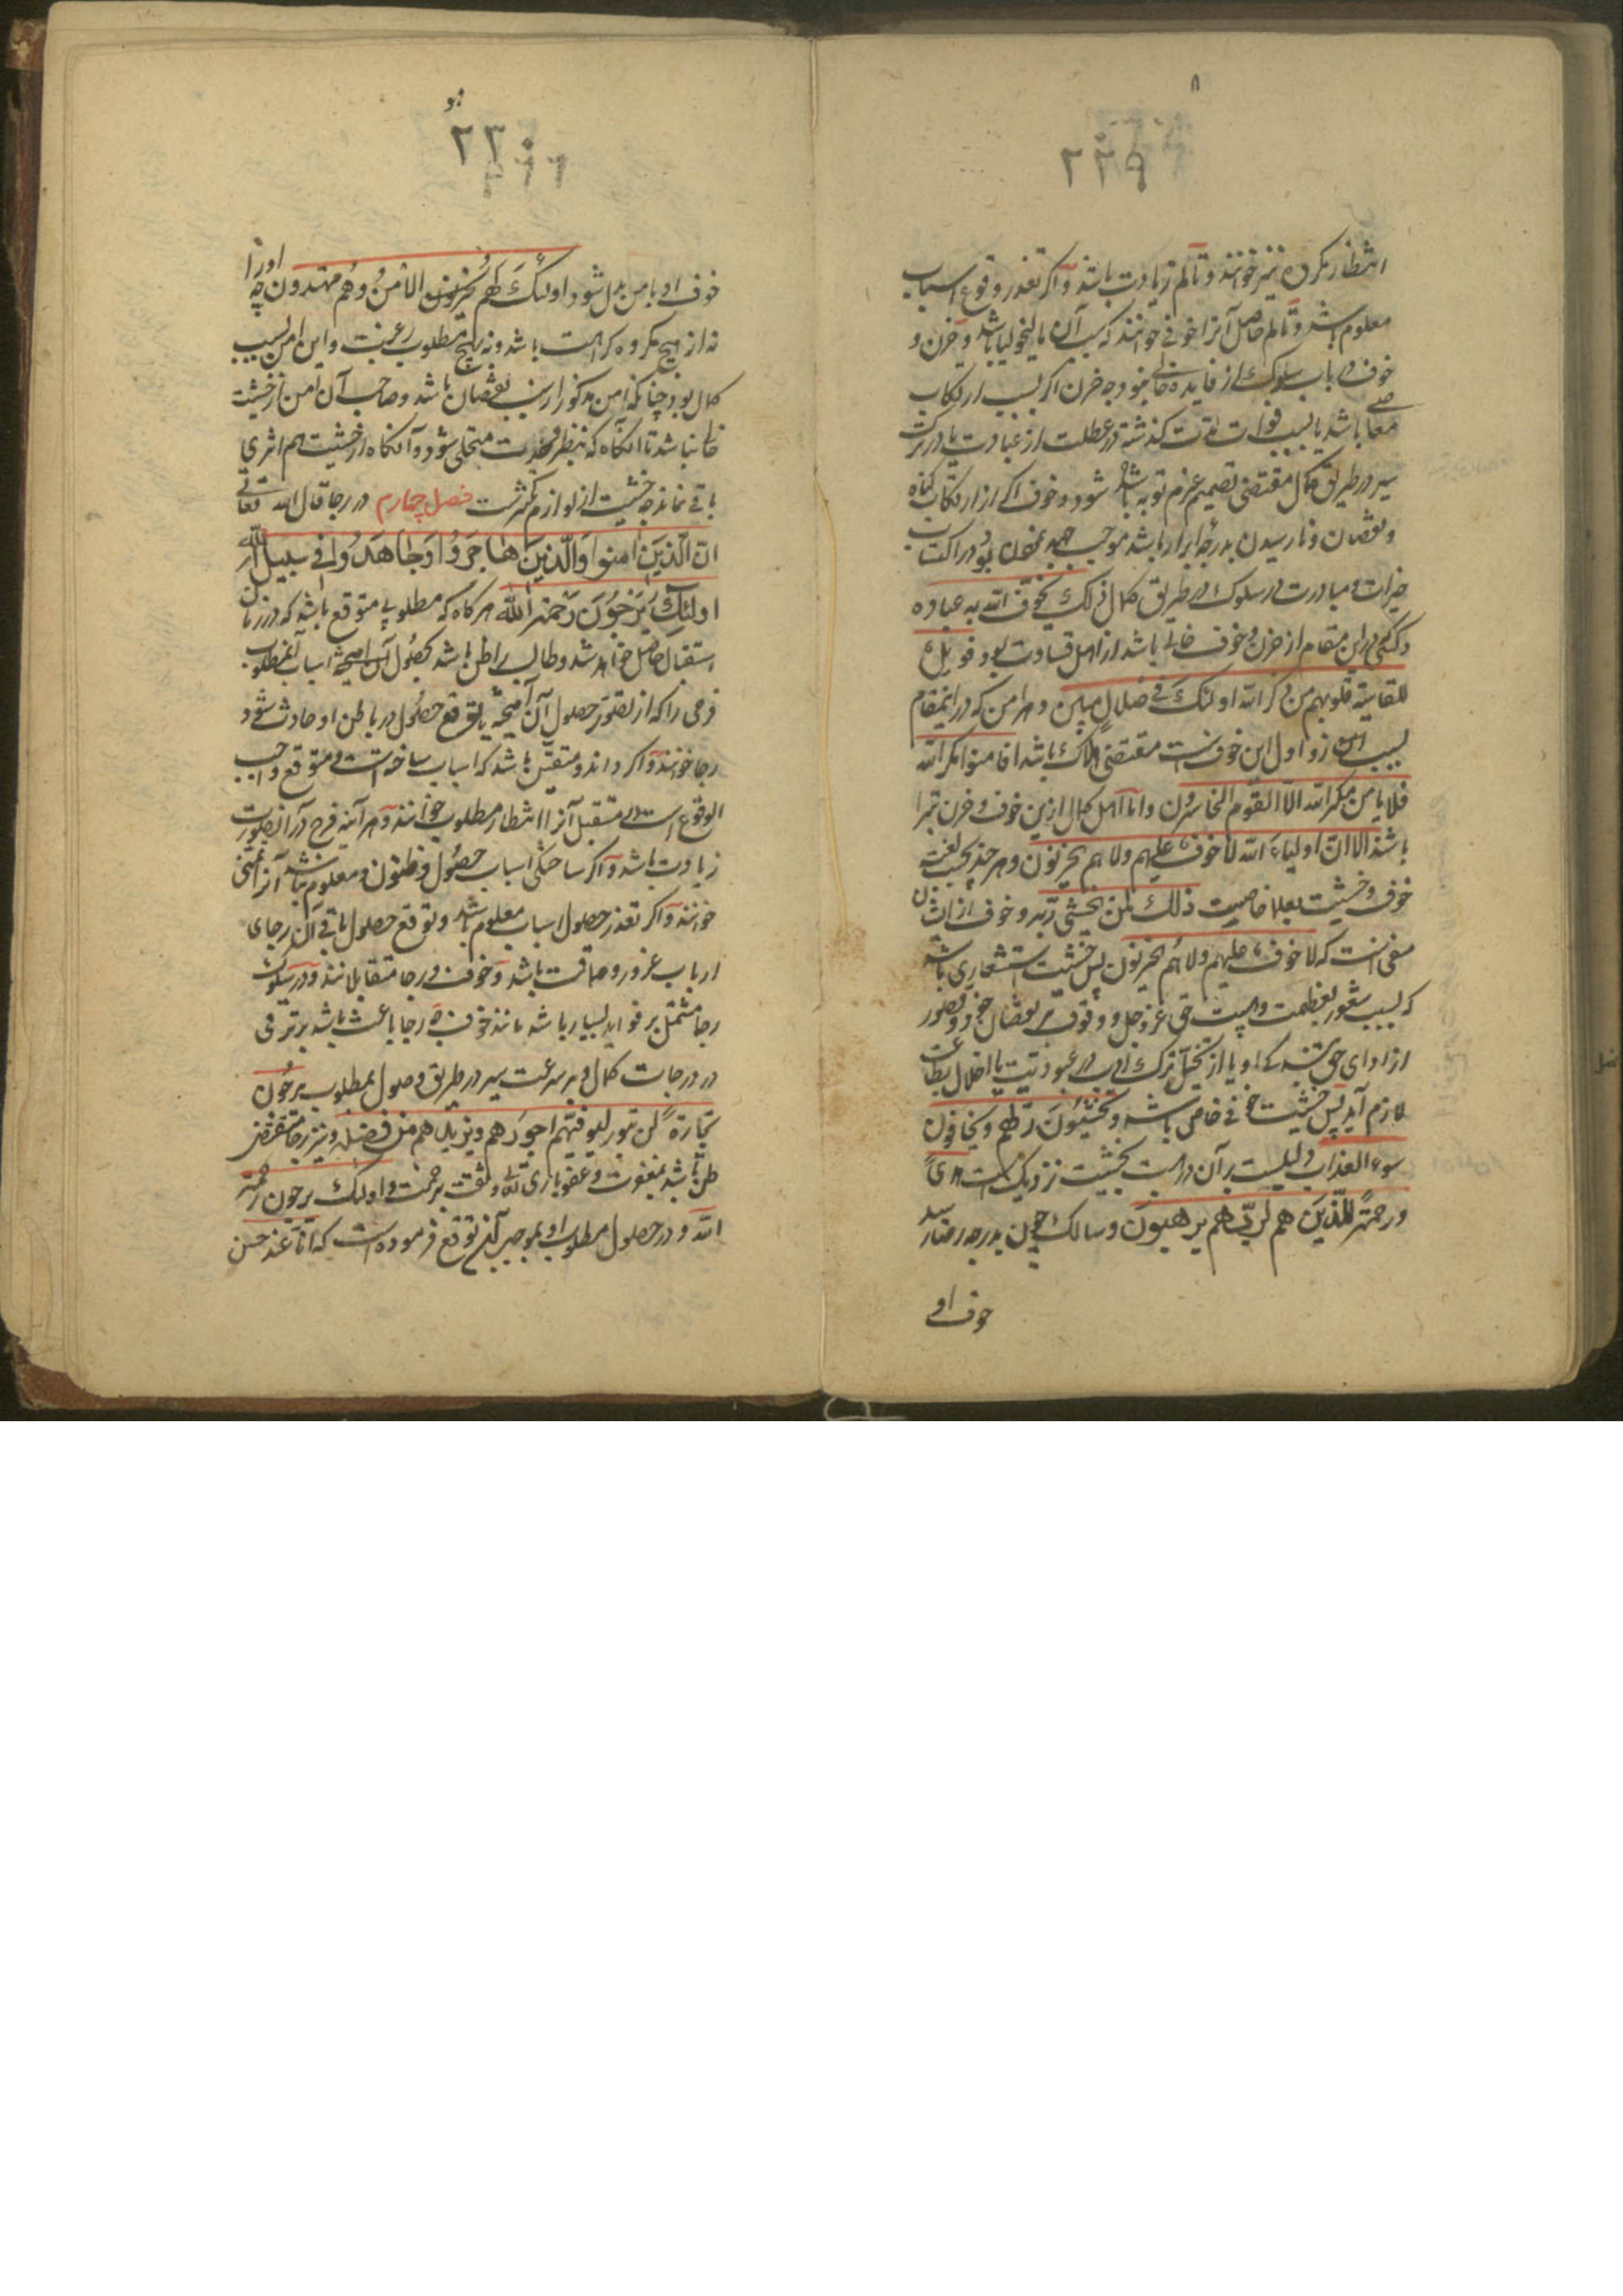 ۸
۲۲۹
انتظار مکروه نیز خوانند و تالم زیادت باشد و اگر تعذر وقوع اسباب
معلوم باشد و تالم حاصل آنرا خوفی خوانند که سبب آن مالیخولیا باشد و حزن و
خوف در باب سلوک از فایده خالی نبود چه حزن اگر بسبب ارتکاب
معاصی باشد یا بسبب فوات مدت گذشته در عطلت از عبادت یا در ترک
سیر در طریق کمال مقتضی تصمیم عزم توبه شود و خوف اگر از ارتکاب گناه
و نقصان و نارسیدن بدرجه ابرار باشد موجب جهد نمودن بود در اکتساب
خیرات و مبادرت در سلوک در طریق کمال ذلک یخوف الله به عباده
و کسی در این مقام از حزن و خوف خالی باشد از اهل قساوت بود فویل
للقاسیة قلوبهم من ذکر الله اولئک فی ضلال مبین و هر امن که در اینمقام
بسبب زوال این خوف مقتضی هلاک باشد افامنوا مکر الله
فلا یامن مکر الله الا القوم الخاسرون و اما اهل کمال ازین خوف و حزن مبرا
باشند الا ان اولیاء الله لا خوف علیهم ولا هم یحزنون و هر چند بحسب لغت
خوف و خشیت ذلک لمن یخشی ربه و خوف از ایشان
منفی است که لا خوف علیهم ولا هم یحزنون پس خشیت استشعاری باشد
که بسبب شعور بعظمت و هیبت حق عز و جل و وقوف بر نقصان خود و قصور
از ادای حق بندگی او یا از تخیل ترک ادبی در عبودیت یا اخلال بطاعت
لازم آید پس خشیت خوفی خاص باشد و یخشون ربهم و یخافون
سوء العذاب دلیلست بر آن و رهبت بخشیت نزدیک است هدی
و رحمة للذین هم لربهم یرهبون و سالک چون بدرجه رضا رسد
خوف او
۲۳۰
خوف او بامن بدل شود اولئک لهم الامن و هم مهتدون چه او را
نه از هیچ مکروه کراهت باشد و نه بهیچ مطلوب رغبت و این امن بسبب
کمال بود چنانکه امن مذکور از سبب نقصان باشد و صاحب آن امن از خشیت
خالی نباشد تا آنگاه که بنظر وحدت متحلی شود و آنگاه از خشیت هم اثری
باقی نماند چه خشیت از لوازم کثرتست فصل چهارم در رجا قال الله تعالی
ان الذین امنوا والذین هاجروا وجاهدوا فی سبیل الله
اولئک یرجون رحمة الله هر گاه که مطلوبی متوقع باشد که در زمان
استقبال حاصل خواهد شد و طالب را ظن باشد بحصول اسباب آنمطلوب
فرحی را که از تصور حصول آن آمیخته با توقع حصول در باطن او حادث شود
رجا خوانند و اگر داند و متیقن باشد که اسباب ساخته است و متوقع واجب
الوقوع است در مستقبل آنرا انتظار مطلوب خوانند و هر آینه فرح در آنصورت
زیادت باشد و اگر ساختگی اسباب حصول مظنون و معلوم نباشد آنرا تمنی
خوانند و اگر تعذر حصول اسباب معلوم باشد و توقع حصول باقی آن رجای
ارباب غرور و حماقت باشد و خوف و رجا متقابلانند و در سلوک
رجا مشتمل بر فواید بسیار باشد مانند خوف چه رجا باعث باشد بر ترقی
در درجات کمال و بر سرعت سیر در طریق وصول بمطلوب یرجون
تجارة لن تبور لیوفیهم اجورهم و یزیدهم من فضله و نیز رجا مقتضی
ظن باشد بمغفرت و عفو باری تعالی و ثقت برحمت و اولئک یرجون رحمة
الله و در حصول مطلوب او بموجب آن توقع فرموده است که انا عند حسن